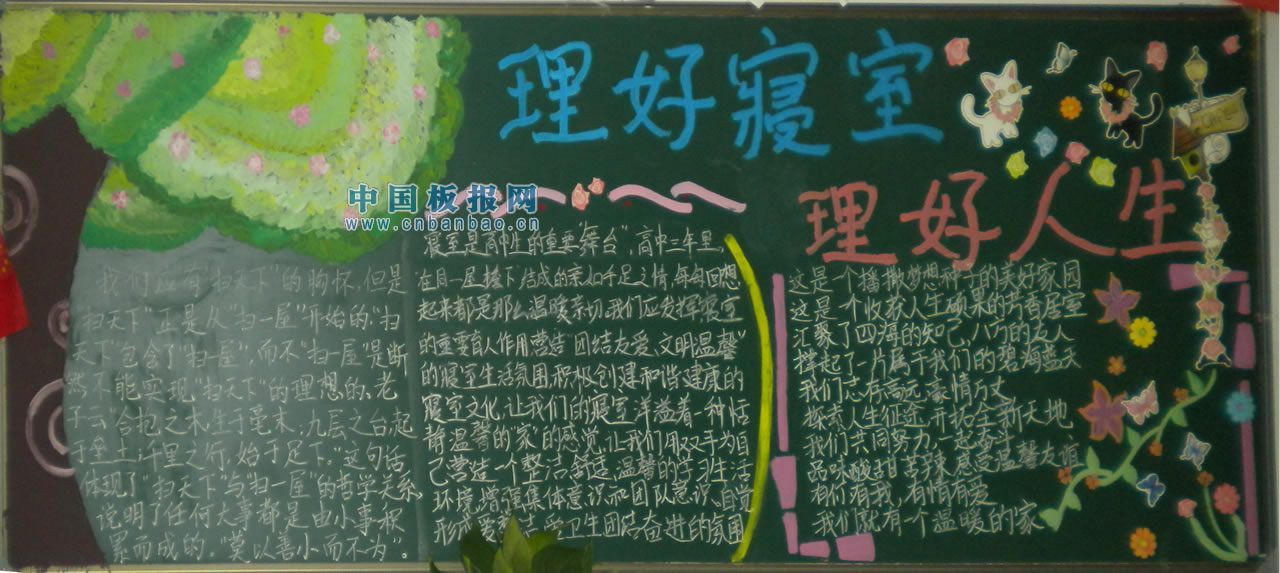 理好寝室
理好人生
中国板报网
www.cnbanbao.cn
我们应有"扫天下"的胸怀,但是
"扫天下"正是从"扫一屋"开始的."扫
天下"包含了"扫一屋",而不"扫一屋"是断
然不能实现"扫天下"的理想的.老
子云"合抱之木,生于毫末,九层之台,起
于垒土,千里之行,始于足下."这句话
体现了"扫天下"与"扫一屋"的哲学关系,
说明了任何大事都是由小事积
累而成的."莫以善小而不为"。
寝室是高中生的重要"舞台",高中三年里
在同一屋檐下结成的亲如手足之情,每每回想
起来都是那么温暖亲切,我们应发挥寝室
的重要育人作用,营造"团结友爱、文明温馨"
的寝室生活氛围,积极创建和谐健康的
寝室文化,让我们的寝室洋溢着一种恬
静温馨的"家"的感觉,让我们用双手为自
己营造一个整洁、舒适、温馨的学习生活
环境,增强集体意识和团队意识,自觉
形成 卫生团结奋进的氛围
这是一个播撒梦想种子的美好家园
这是一个收获人生硕果的芳香居室
汇聚了四海的知己,八方的友人
撑起了一片属于我们的碧海蓝天
我们志存高远,豪情万丈
探索人生征途,开拓全新天地
我们共同努力,一起奋斗
品味酸甜苦辣,感受温馨友谊
有你有我,有情有爱
我们就有一个温暖的"家